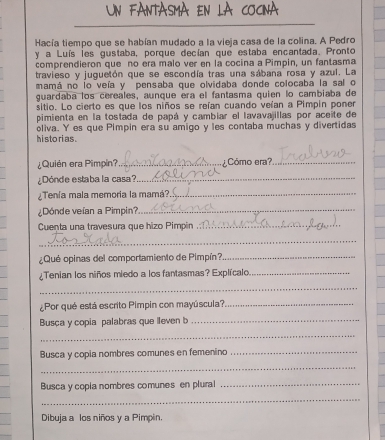 UN FANTASMA EN LA COCINA
Hacía tiempo que se habían mudado a la vieja casa de la colina. A Pedro
y a Luís les gustaba, porque decían que estaba encantada. Pronto
comprendieron que no era malo ver en la cocina a Pimpin, un fantasma
travieso y juguetón que se escondía tras una sábana rosa y azul. La
mamá no lo veía y pensaba que olvidaba donde colocaba la sal o
guardaba los cereales, aunque era el fantasma quien lo cambiaba de
sitio. Lo cierto es que los niños se reían cuando veían a Pimpin poner
pimienta en la tostada de papá y cambiar el lavavajillas por aceite de
oliva. Y es que Pimpin era su amigo y les contaba muchas y divertidas
historias.
¿Quién era Pimpin? fantasma ¿Cómo era? Trabieso
¿Dónde estaba la casa? colina
¿Tenía mala memoria la mamá? Si
¿Dónde veían a Pimpin? cocina
Cuenta una travesura que hizo Pimpin pimienta en la
tostada
¿Qué opinas del comportamiento de Pimpin?
¿Tenian los niños miedo a los fantasmas? Explícalo.
¿Por qué está escrito Pimpin con mayúscula?
Busca y copia palabras que lleven b
Busca y copia nombres comunes en femenino
Busca y copia nombres comunes en plural
Dibuja a los niños y a Pimpin.